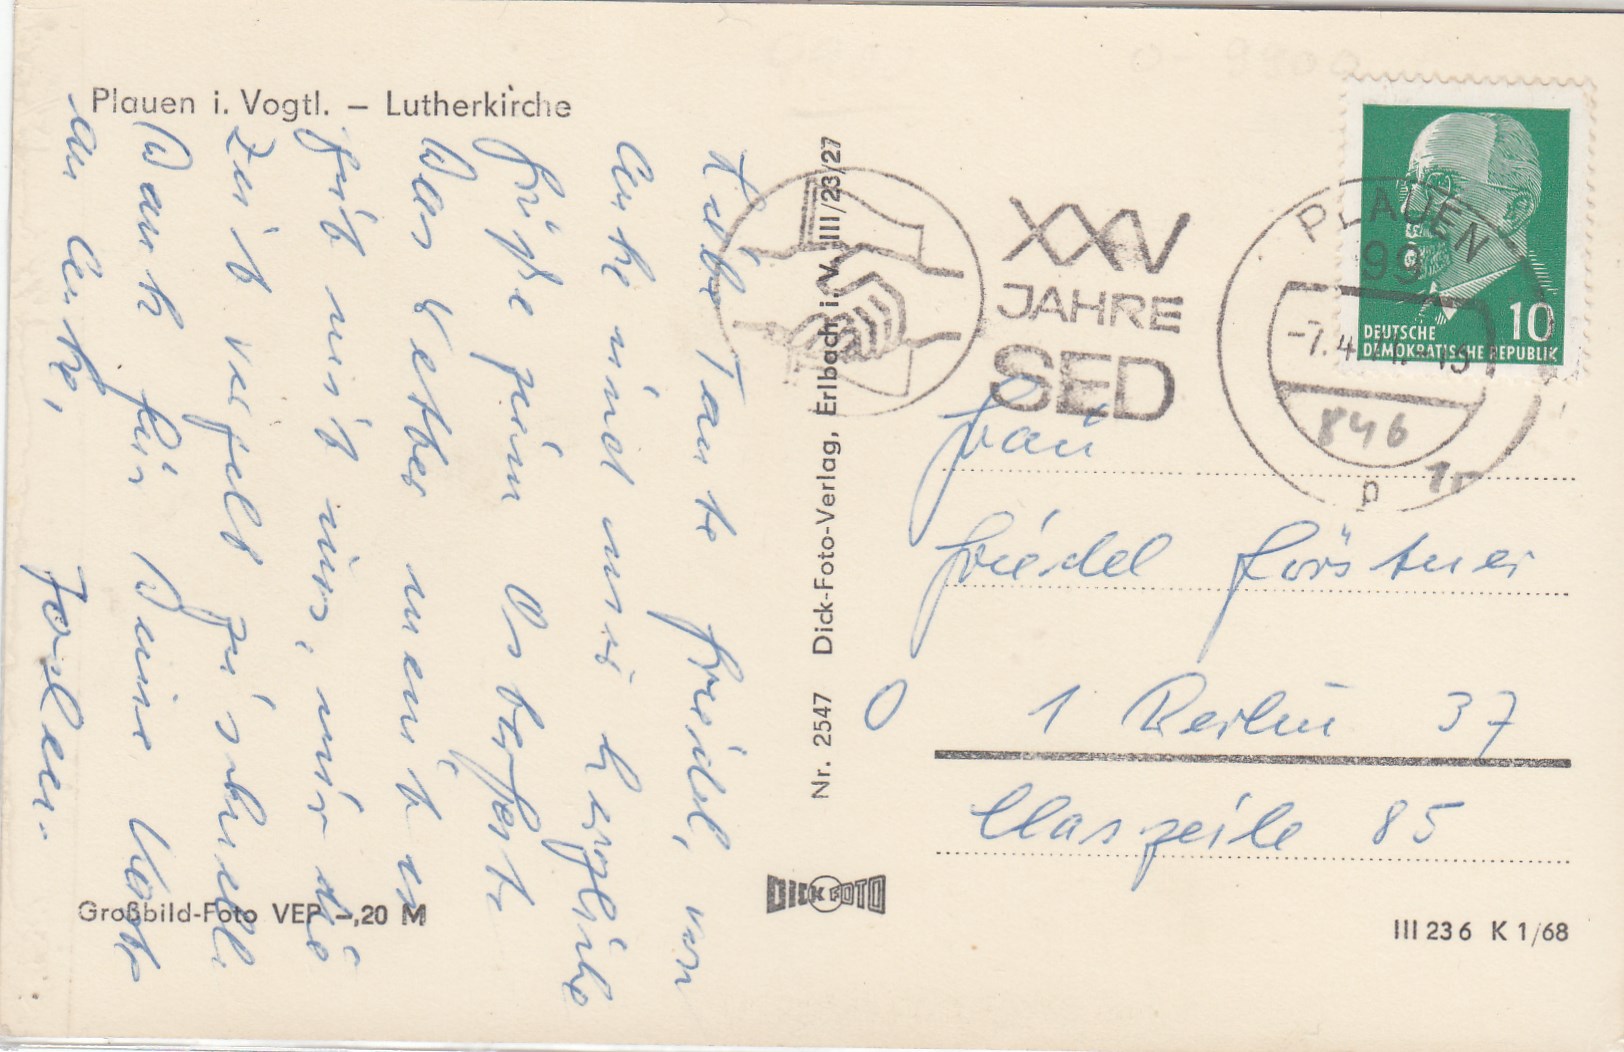 Plauen i. Vogtl. – Lutherkirche
Liebe Tante Friedel, von
Anke und mir herzliche
Grüße zum Osterfest.
Das Wetter meint es
gut mit uns, nur die
Zeit vergeht zu schnell.
Dank für Deine Karte
an Anke,
Großbild-Foto VEP –,20 M
Nr. 2547 Dick-Foto-Verlag, Erlbach i. V. III/23/27
DICK FOTO
XXV
JAHRE
SED
PLAUEN
99
-7.4.71.-15
846
p
DEUTSCHE
DEMOKRATISCHE REPUBLIK
10
Frau
Friedel Förstner
1 Berlin 37
85
III 23 6 K 1/68